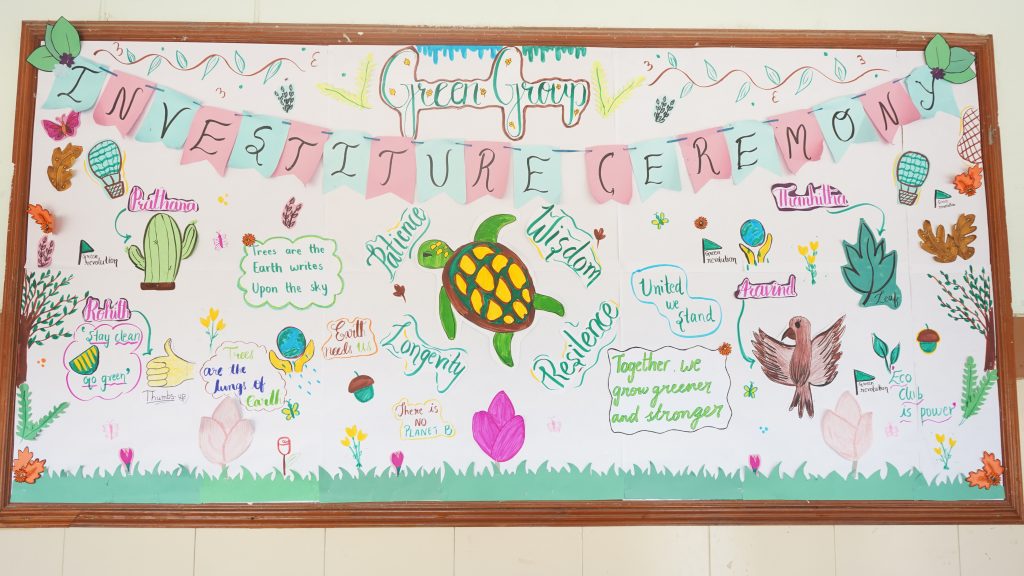 Green Group
INVESTITURE CEREMONY
Prathana
Green revolution
Trees are the
Earth writes
Upon the sky
Patience
Wisdom
Longevity
Resilience
Thanhitha
Green revolution
Green revolution
Leaf
United
we
stand
Aravind
Rohith
'Stay clean
go green'
Thumbs-up
Trees
are the
lungs of
Earth
Earth
needs us
There is
NO
PLANET B
Together we
grow greener
and stronger
Green revolution
Eco
Club
is power'